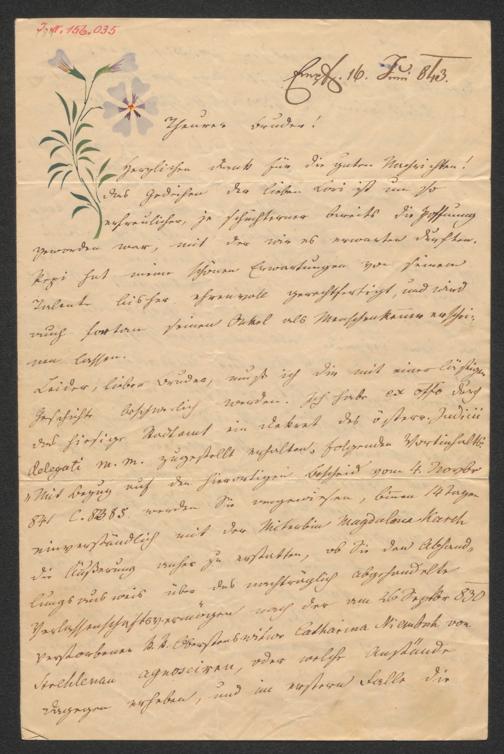 J.N. 156.035
16. Juni 843.
Theurer Bruder!
Herzlichen Dank für die guten Nachrichten!
das Gedeihen der lieben Lori ist um so
erfreulicher, je schüchterner bereits die Hoffnung
geworden war, mit der wir es erwarten durften.
Pepi hat meine schönen Erwartungen von seinem
Talente bisher ehrenvoll gerechtfertigt, und wird
auch fortan seinen Onkel als Menschenkenner erschei-
nen lassen.
Leider, lieber Bruder, muß ich dir mit einer lästigen
Geschichte beschwerlich werden. Ich habe ex offo durch
das hiesige Stadtamt ein Dekret des österr. Judicii
delegati m. m. zugestellt erhalten, folgenden Wortinhalts:
"Mit Bezug auf den hierortigen Bescheid vom 4. Novbr
841 C. werden Sie angewiesen, binnen 14 Tagen
einverständlich mit der Miterbin Magdalena
die Äußerung anher zu erstatten, ob Sie den Abhand-
lungsausweis über das nachträglich abgehandelte
Verlassenschaftsvermögen nach der am 26 Septbr 830
verstorbenen k.k. Oberstenswitwe Catharina Niembsch von
Strehlenau agnosciren, oder welche Anstände
dagegen erheben, und im erstern Falle die